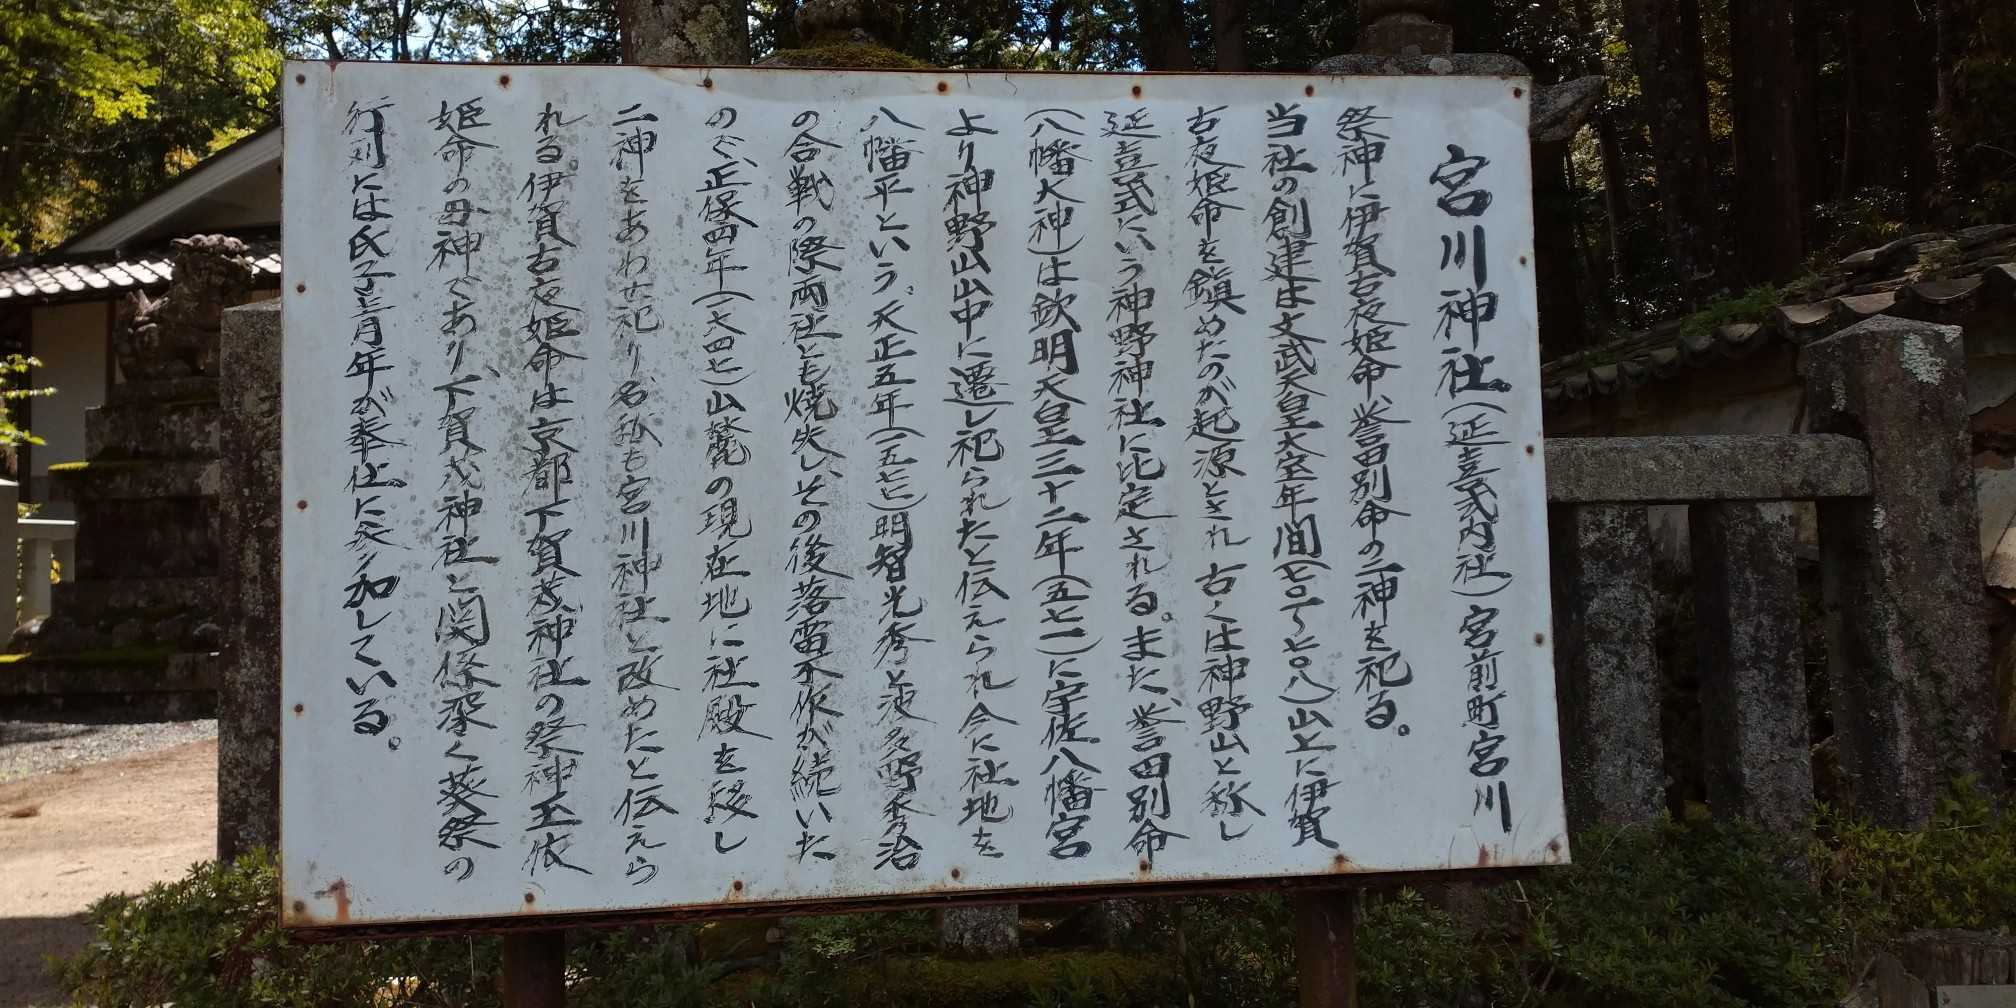 宮川神社(延喜式内社)宮前町宮川
祭神に伊賀古夜姫命、誉田別命の二神を祀る。
当社の創建は文武天皇大宝年間(七〇一~七〇八)山上に伊賀
古夜姫命を鎮めたのが起源とされ古くは神野山と称し
延喜式にいう神野神社に比定される。また、誉田別命
(八幡大神)は欽明天皇三十二年(五七一)に宇佐八幡宮
より神野山山中に遷し祀られたと伝えられ今に社地を
八幡平という。天正五年(一五七七)明智光秀と波多野秀治
の合戦の際両社とも焼失し、その後落雷不作が続いた
ので、正保四年(一六四七)山麓の現在地に社殿を移し
二神をあわせ祀り名称も宮川神社と改めたと伝えら
れる。伊賀古夜姫命は京都下賀茂神社の祭神玉依
姫命の母神であり、下賀茂神社と関係深く葵祭の
行列には氏子青年が奉仕に参加している。